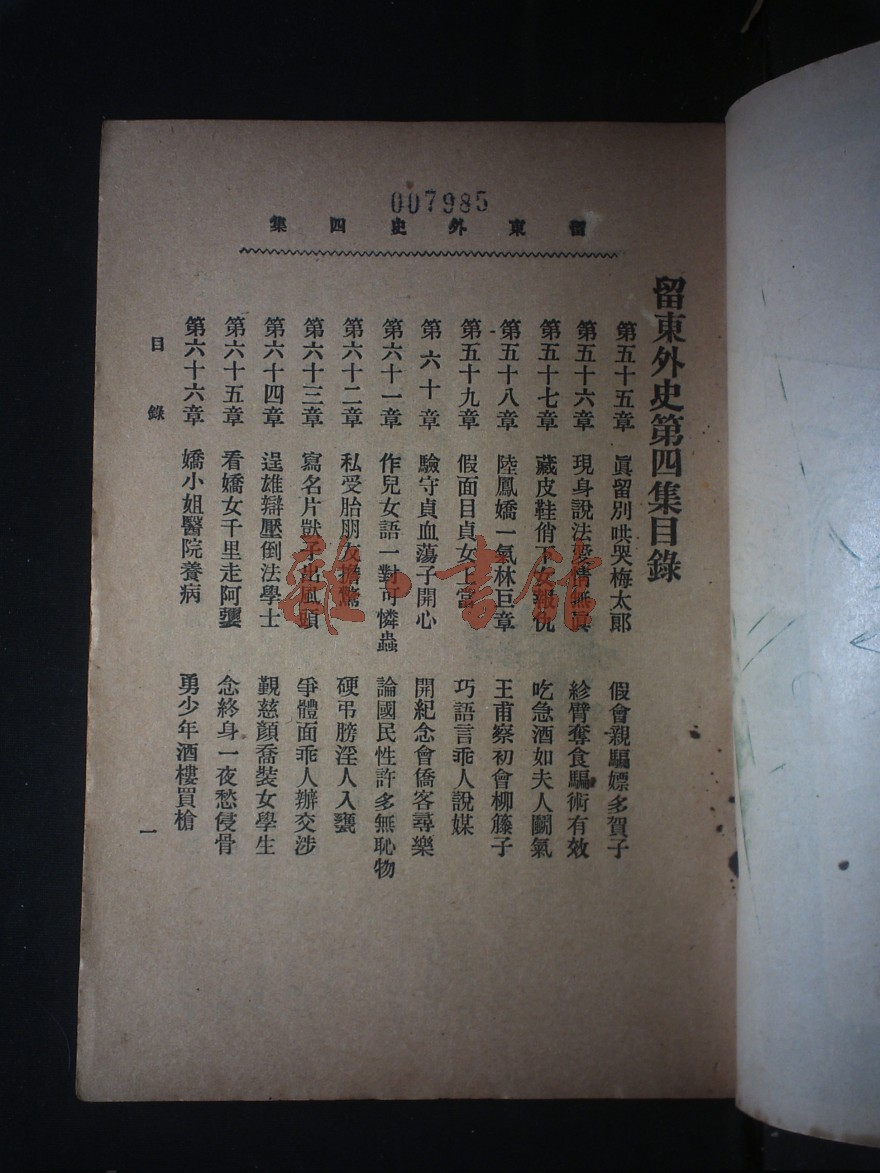 007985
留東外史四集
留東外史第四集目錄
第五十五章 眞留別哄哭梅太郞 假會親騙嫖多賀子
第五十六章 現身說法愛情無眞 紾臂奪食騙術有效
第五十七章 藏皮鞋俏下女報仇 吃急酒如夫人鬭氣
第五十八章 陸鳳嬌一氣林巨章 王甫察初會柳籐子
第五十九章 假面目貞女上當 巧語言乖人說媒
第六十章 驗守貞血蕩子開心 開紀念會僑客尋樂
第六十一章 作兒女語一對可憐蟲 論國民性許多無恥物
第六十二章 私受胎朋友擔驚 硬弔膀淫人入甕
第六十三章 寫名片獃子出風頭 爭體面乖人辦交涉
第六十四章 逞雄辯壓倒法學士 覲慈顏喬裝女學生
第六十五章 看嬌女千里走阿蘇 念終身一夜愁侵骨
第六十六章 嬌小姐醫院養病 勇少年酒樓買槍
目錄
一
雜·書館